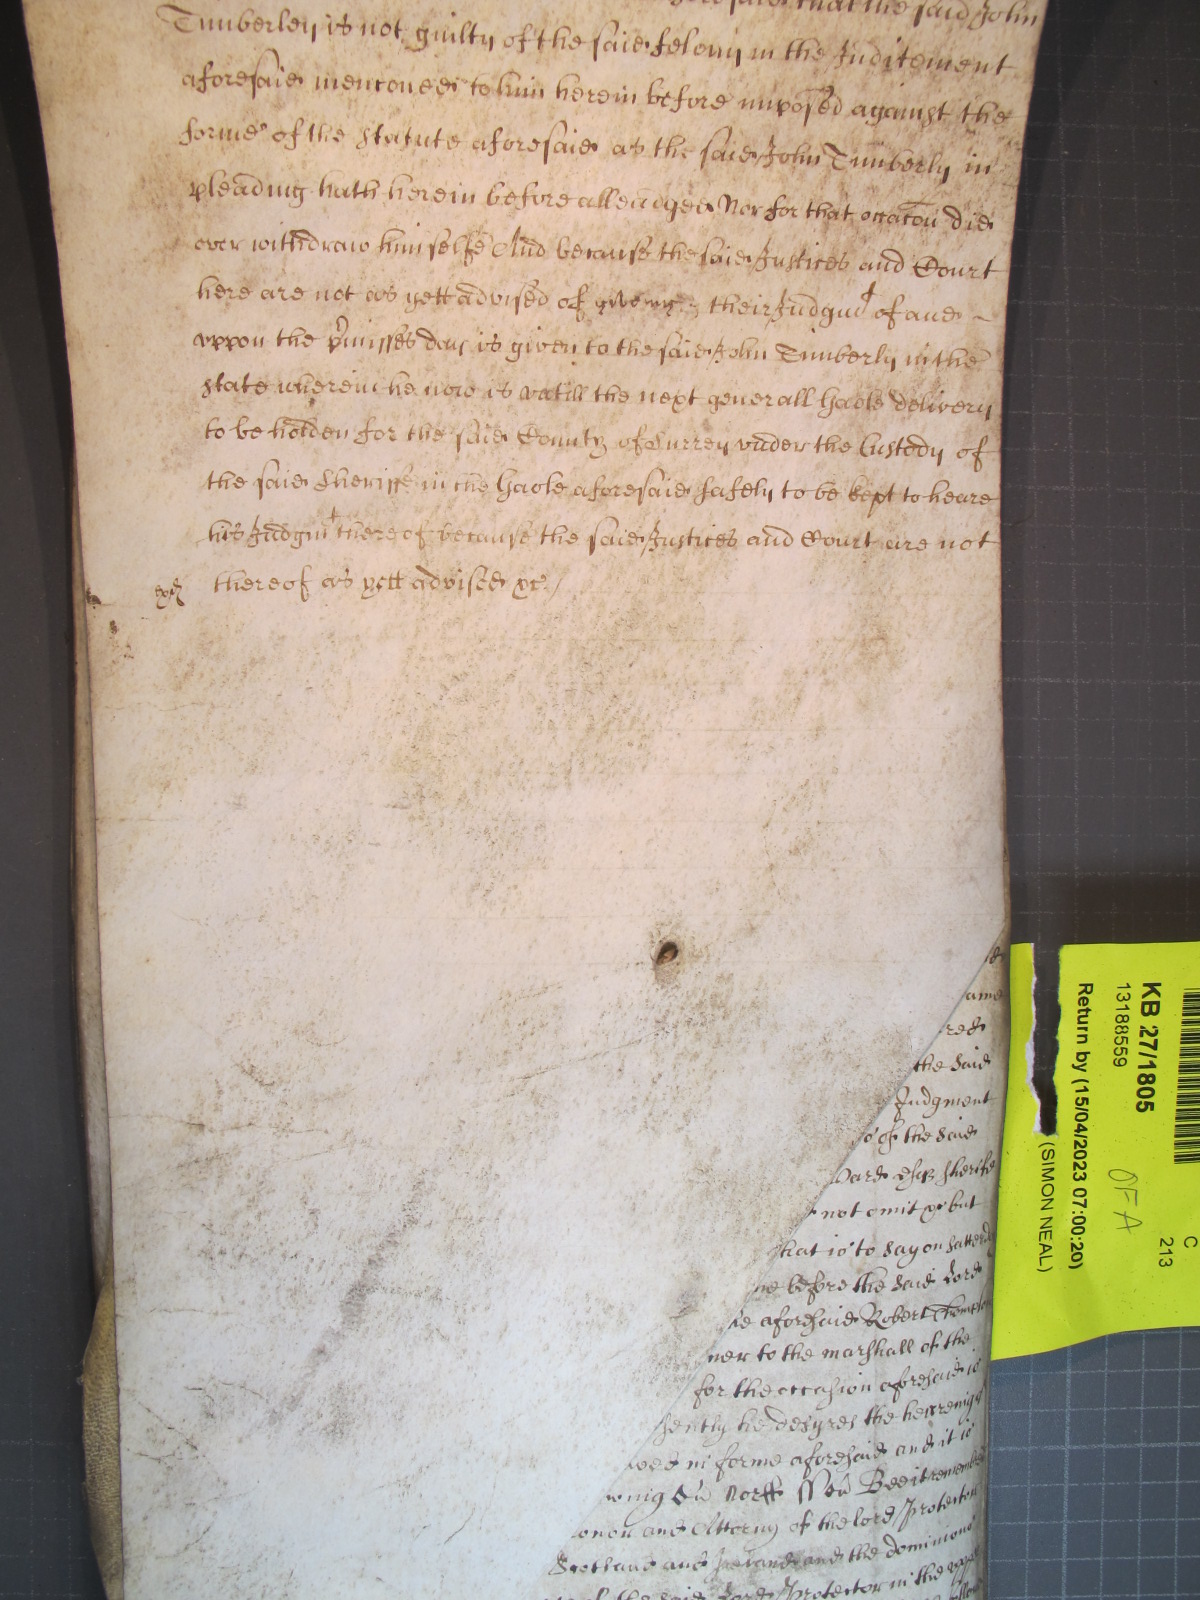 aforesaid that the said John
Timberley is not guilty of the said felony in the Inditement
aforesaid menconed to him herein before imposed against the
forme of the Statute aforesaid as the said John Timberly in
pleading hath herein before alleadged Nor for that occacon did
ever withdraw himselfe And because the said Justices and Court
here are not as yett advised of giveing their Judgmt of and
uppon the pmisses day is given to the said John Timberly in the
state wherein he now is untill the next generall Gaole delivery
to be holden for the said County of Surrey under the Custody of
the said Sheriffe in the Gaole aforesaid safely to be kept to heare
his Judgmt thereof because the said Justices and Court are not
thereof as yett advised &c /
ame
red
the said
Judgment
of the said
not omit &c but
that is to say on
before the said Lord
aforesaid Robert
ner to the marshall of the
for the occasion aforesaid is
he desyres the
in forme aforesaid and it is
Norff ss Bee it
and Attorny of the lord Protector
Scotland and Ireland and the dominions
the said Lord Protector in the
KB 27/1805
13188559
Return by (15/04/2023 07:00:20)
(SIMON NEAL)
OFA
C
213